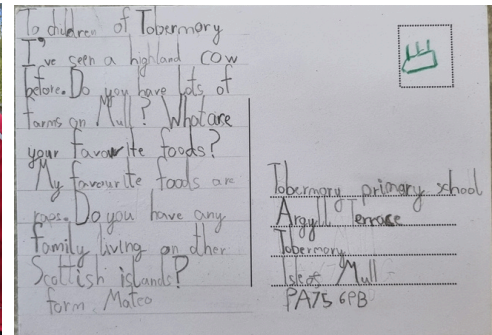 To children of Tobermory
I've seen a highland cow
before. Do you have lots of
farms on Mull? What are
your favourite foods?
My favourite foods are
raps. Do you have any
family living on other
Scottish islands?
form Mateo
Tobermory primary school
Argyll Terrace
Tobermory
Isle of Mull
PA75 6PB